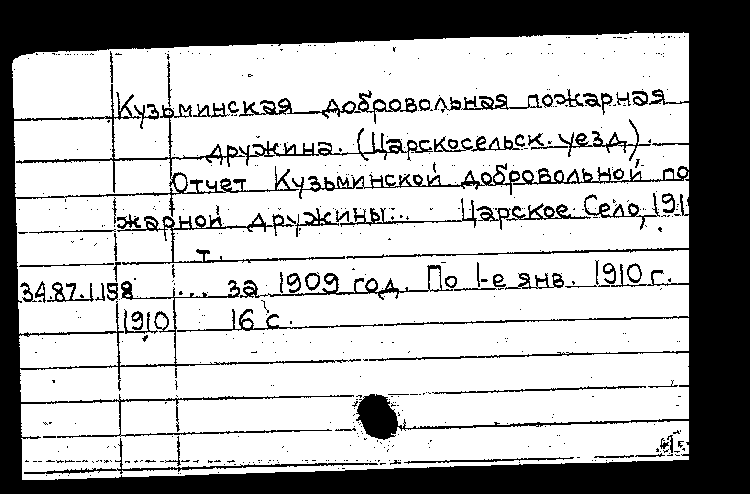 Кузьминская добровольная пожарная
дружина. (Царскосельск. уезд).
Отчет Кузьминской добровольной по
жарной дружины:.. Царское Село, 191
т.
34.87.1.158 ... за 1909 год. По 1-е янв. 1910 г.
1910 16 с.